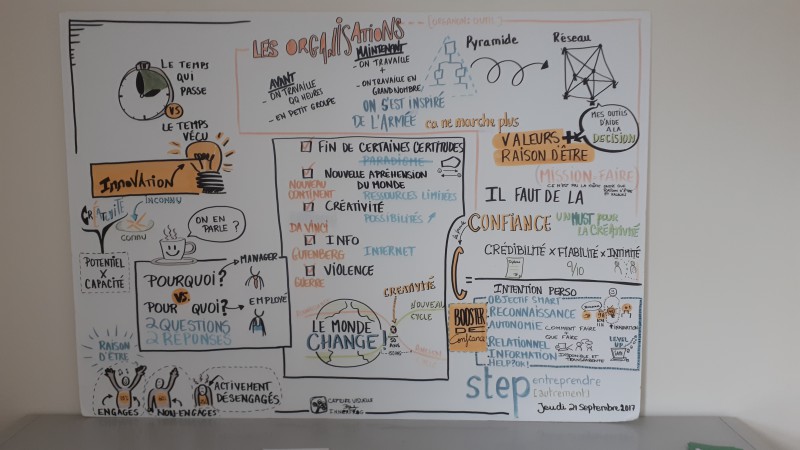 LE TEMPS
QUI
PASSE
VS
LE TEMPS
VÉCU
INNOVATION
CRÉATIVITÉ
INCONNU
CONNU
POTENTIEL
X
CAPACITÉ
ON EN
PARLE ?
POURQUOI?
VS.
POUR QUOI?
2 QUESTIONS
2 RÉPONSES
MANAGER
EMPLOYÉ
RAISON
D'ÊTRE
ENGAGÉS
NON ENGAGÉS
ACTIVEMENT
DÉSENGAGÉS
LES ORGANISATIONS
AVANT
- ON TRAVAILLE
QQ HEURES
- EN PETIT GROUPE
MAINTENANT
- ON TRAVAILLE
+
- ON TRAVAILLE EN
GRAND NOMBRE
ON S'EST INSPIRÉ
DE L'ARMÉE
ca ne marche plus
Pyramide
Réseau
MES OUTILS
D'AIDE
A LA
DECISION
FIN DE CERTAINES CERTITUDES
PARADIGME
NOUVELLE APPRÉHENSION
DU MONDE
NOUVEAU
CONTINENT
RESSOURCES LIMITÉES
CRÉATIVITÉ
POSSIBILITÉS
DA VINCI
INFO
GUTENBERG
INTERNET
VIOLENCE
GUERRE
LE MONDE
CHANGE
CREATIVITÉ
NOUVEAU
CYCLE
VALEURS ++
RAISON D'ÊTRE
(MISSION-FAIRE)
IL FAUT DE LA
CONFIANCE
UN MUST POUR
LA CRÉATIVITÉ
C =
CRÉDIBILITÉ x FIABILITÉ x INTIMITÉ
9/10
INTENTION PERSO
BOOSTER
DE
Confiance
OBJECTIF SMART
RECONNAISSANCE
AUTONOMIE
COMMENT FAIRE
QUE FAIRE
RELATIONNEL
INFORMATION
DISPONIBLE ET
TRANSPARENTE
LEVEL
UP
step
entreprendre
(autrement)
Jeudi 21 Septembre 2017